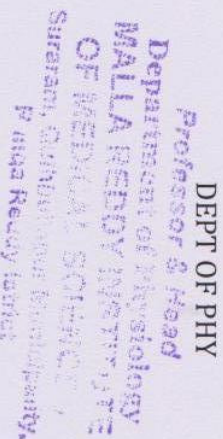 DEPT OF PHY
Professor & Head
Department of Physiology
MALLA REDDY INSTITUTE
OF MEDICAL SCIENCES
Suraram,
Reddy